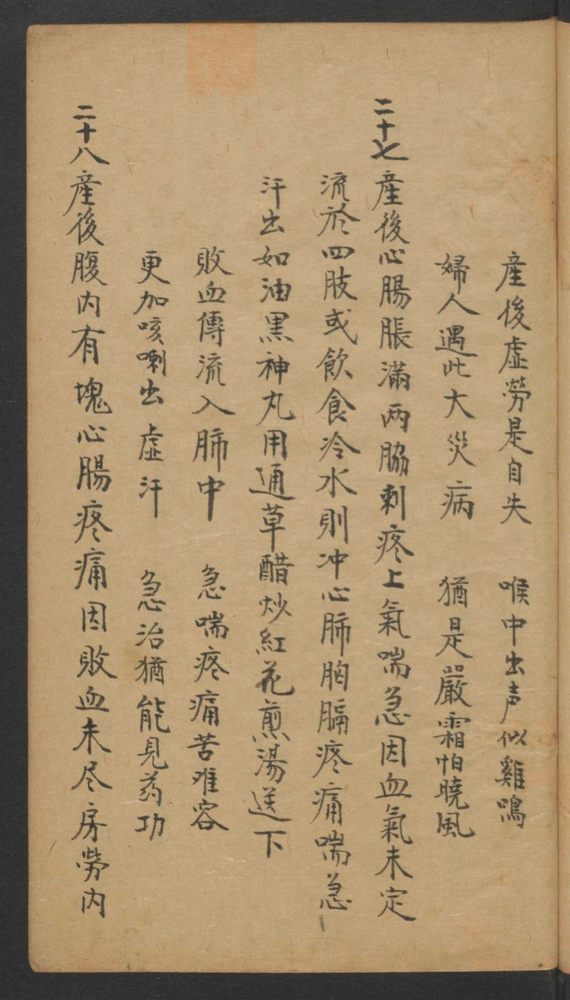 産後虚勞是自失　喉中出声似雞鳴
婦人遇此大災病　猶是嚴霜怕曉風
二十七産後心腸脹滿两脇刺疼上氣喘急因血氣未定
流於四肢或飲食冷水則冲心肺胸膈疼痛喘急
汗出如油黑神丸用通草醋炒紅花煎湯送下
敗血傳流入肺中　急喘疼痛苦难容
更加咳嗽出虚汗　急治猶能見药功
二十八産後腹内有塊心腸疼痛因敗血未尽房勞内